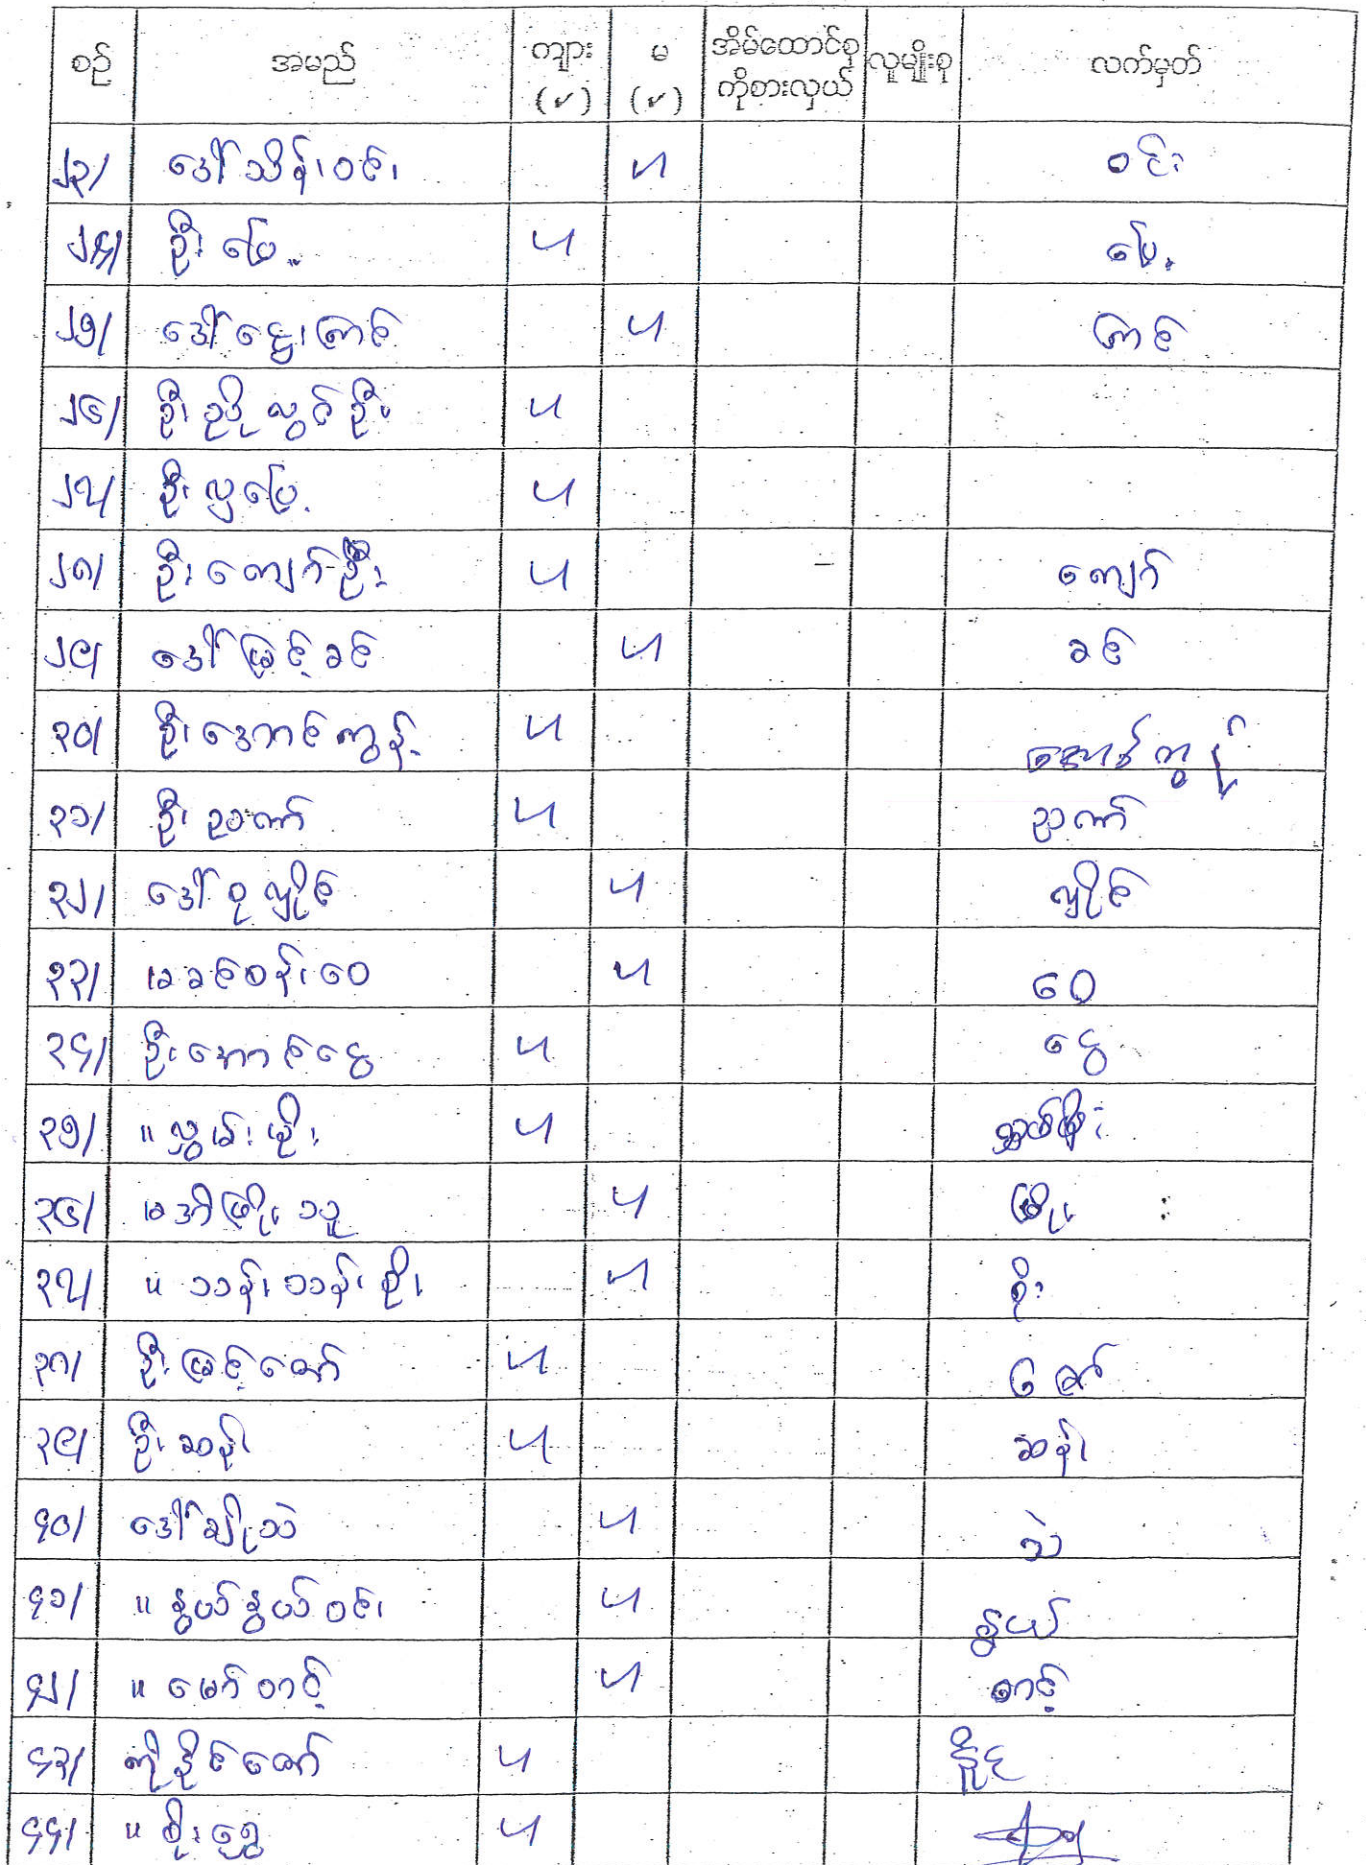 စဉ် အမည် ကျား (✓) မ (✓) အိမ်ထောင်စု ကိုစားလှယ် လူမျိုးစု လက်မှတ်
၂၃/ ဒေါ်သိန်းဝင်း ✓ ဝင်း
၂၄/ ဦးဖြေ ✓ ဖြေ
၂၅/ ဒေါ်ဌေးကြင် ✓ ကြင်
၂၆/ ဦးညိုလွင်ဦး ✓
၂၇/ ဦးလှဖြေ ✓
၂၈/ ဦးကျော်ဦး ✓ ကျော်
၂၉/ ဒေါ်မြင့်ခင် ✓ ခင်
၃၀/ ဦးအောင်ကွန့် ✓ အောင်ကွန့်
၃၁/ ဦးဉာဏ် ✓ ဉာဏ်
၃၂/ ဒေါ်စုလှိုင် ✓ လှိုင်
၃၃/ မခင်စန်းဝေ ✓ ဝေ
၃၄/ ဦးအောင်ငွေ ✓ ငွေ
၃၅/ " လွှမ်းမိုး ✓ လွှမ်းမိုး
၃၆/ မအိဖြိုးသူ ✓ ဖြိုး
၃၇/ " သန်းသန်းစိုး ✓ စိုး
၃၈/ ဦးမြင့်ဇော် ✓ ဇော်
၃၉/ ဦးဆန်း ✓ ဆန်း
၄၀/ ဒေါ်ချိုသဲ ✓ သဲ
၄၁/ " နွယ်နွယ်ဝင်း ✓ နွယ်
၄၂/ " မော်တင့် ✓ တင့်
၄၃/ ကိုနိုင်ဇော် ✓ နိုင်
၄၄/ " စိုးရွှေ ✓